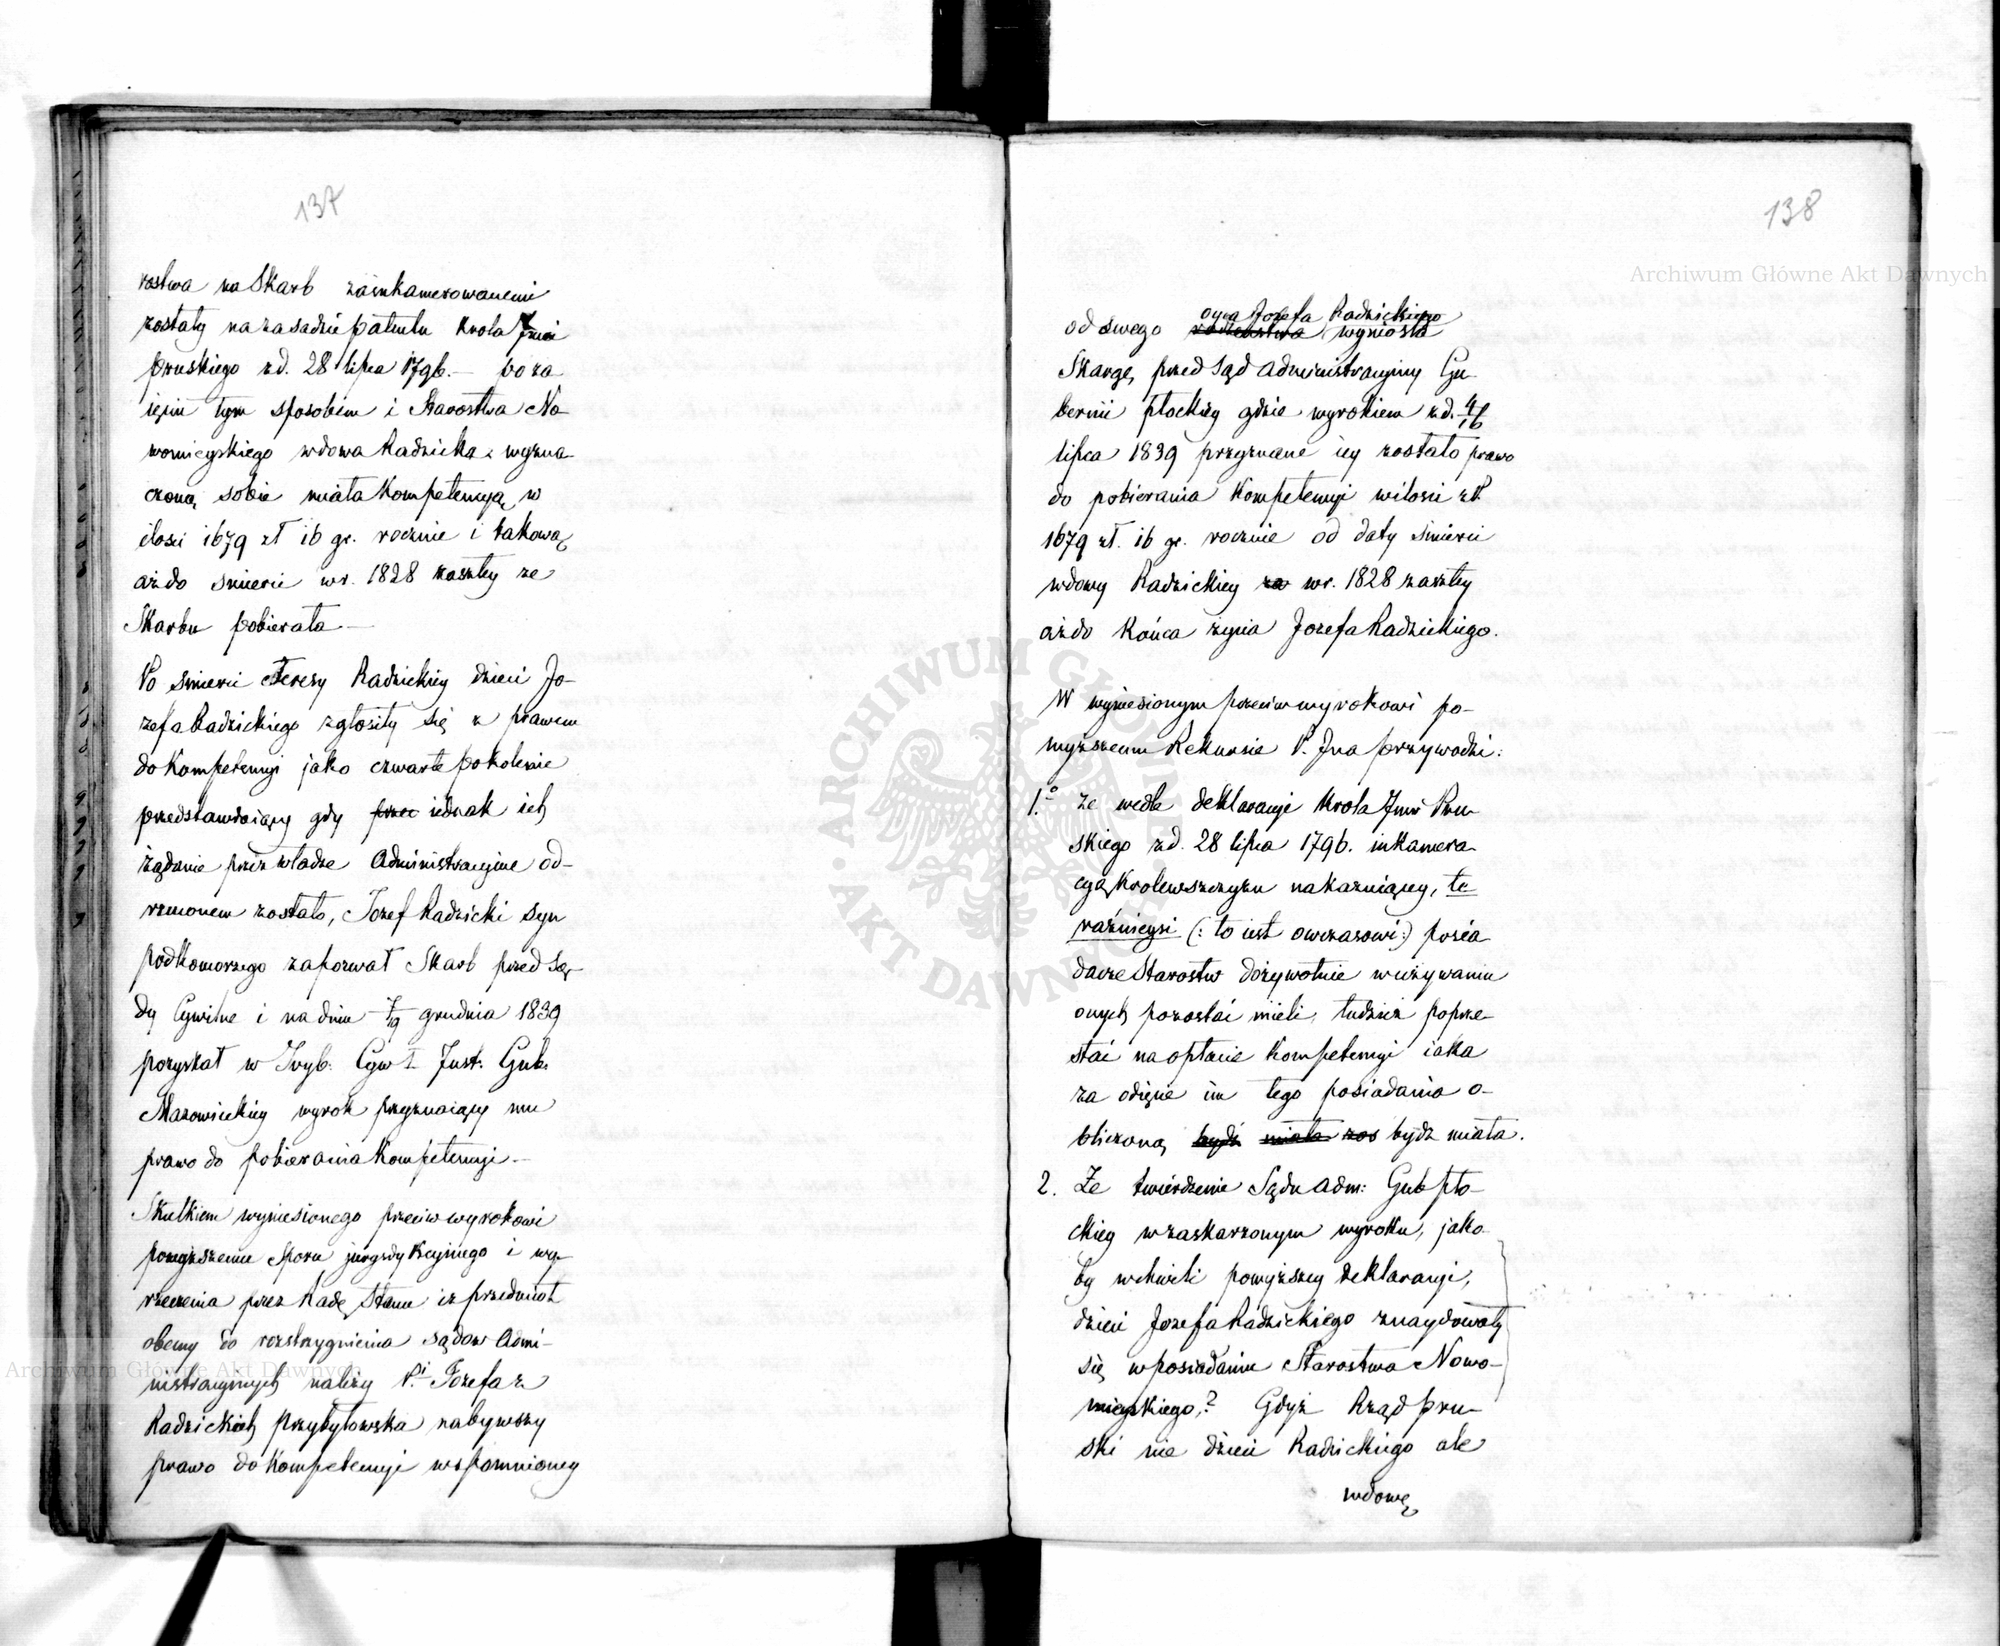 137
rostwa na Skarb zainkamerowanemi
zostały na zasadzie patentu Krola Jmci
pruskiego z d. 28 lipca 1796. — po za
ięciu tym sposobem i Starostwa No-
womieyskiego wdowa Radzicka wyzna
czoną sobie miała Kompetencyą w
ilości 1679 zł 16 gr. rocznie i takową
aż do śmierci w r. 1828 zaszłey ze
Skarbu pobierała —
Po śmierci Teresy Radzickiey dzieci Jo-
zefa Radzickiego zgłosiły się z prawem
do Kompetencyi jako czwarte pokolenie
przedstawiaiący gdy przez iednak ich
żądanie przez władze Administracyine od-
rzuconem zostało, Jozef Radzicki syn
podkomorzego zapozwał Skarb przed Są-
dy Cywilne i na dniu 7/19 grudnia 1839
pozyskał w Tryb. Cyw I. Inst. Gub.
Mazowieckiey wyrok przyznaiący mu
prawo do pobierania Kompetencyi —
Skutkiem wyniesionego przeciw wyrokowi
powyższemu Sporu jurysdykcyinego i wy-
rzeczenia przez Radę Stanu iż przedmiot
obecny do rozstrzygnienia sądow Admi-
nistracyinych należy P.i Jozefa z
Radzickich Przybyłowska nabywszy
prawo do Kompetencyi wspomnioney
138
oyca Jozefa Radzickiego
od swego rodzeństwa wyniosła
Skargę przed Sąd Administracyiny Gu
bernii płockiey gdzie wyrokiem z d. 4/16
lipca 1839 przyznane iey zostało prawo
do pobierania Kompetencyi w ilości zł
1679 zł. 16 gr. rocznie od daty śmierci
wdowy Radzickiey za w r. 1828 zaszłey
aż do Końca życia Jozefa Radzickiego.
W wyniesionym przeciw wyrokowi po-
wyższemu Rekursie P. Jna przywodzi:
1.o że wedle deklaracyi Krola Jmci Pru
skiego z d. 28 lipca 1796. inkamera
cyą Krolewszczyzn nakazuiącey, te
raźnieysi (: to iest owczasowi :) posia
dacze Starostw dożywotnie w używaniu
onych pozostać mieli, tudzież poprze-
stać na opłacie Kompetencyi iaka
za odięcie im tego posiadania o-
bliczoną bydź miała zos bydz miała.
2. Że twierdzenie Sądu Adm: Gub pło-
ckiey w zaskarzonym wyroku, jako
by w chwili powyższey deklaracyi,
dzieci Jozefa Radzickiego znaydowały
się w posiadaniu Starostwa Nowo-
mieyskiego,? Gdyż Rząd pru-
ski nie dzieci Radzickiego ale
wdowę
Archiwum Główne Akt Dawnych
Archiwum Główne Akt Dawnych
ARCHIWUM GŁÓWNE AKT DAWNYCH